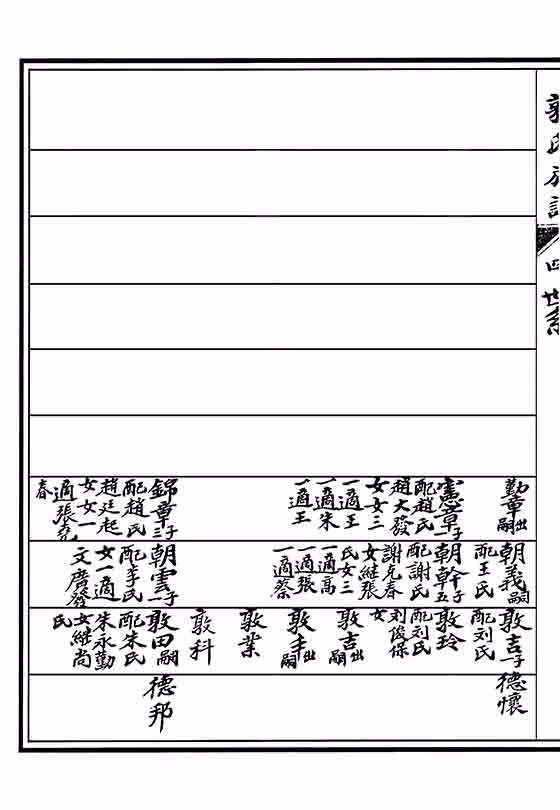 郭氏族譜
四 世系
勤章出嗣
憲章子一
配趙氏
趙大發
女女三
一適王
一適朱
一適王
錦章子三
配趙氏
趙廷起
女女一
適張堯
春
朝義嗣
配王氏
朝幹子五
配謝氏
謝兄春
女繼張
氏女三
一適高
一適張
一適蔡
朝雲子一
配李氏
女一適
文廣發
敦吉子一
配刘氏
敦玲
配刘氏
刘俊保
女
敦吉出嗣
敦丰出嗣
敦業
敦科
敦田嗣
配朱氏
朱永勤
女繼尚
氏
德懷
德邦